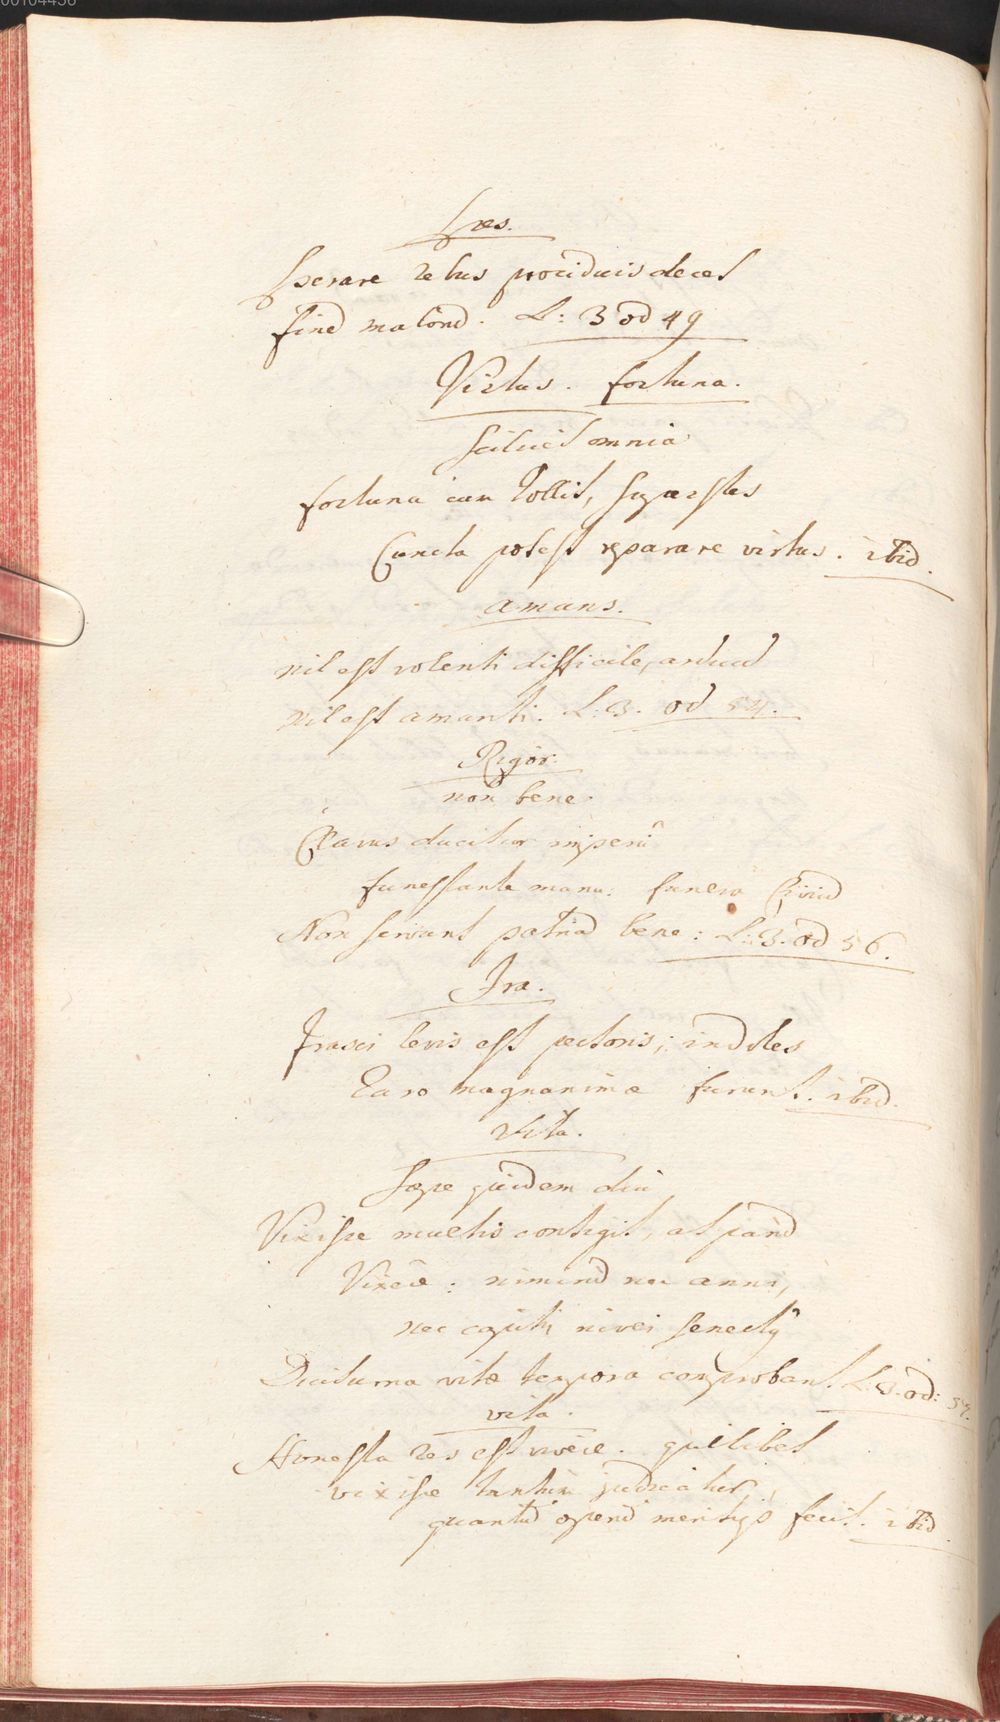 Spes.
Sperare rebus prociduis decet
finē malorū. L: 3 od 49
Virtus. fortuna.
Scilicet omnia
fortuna cum tollit, superstes
Cuncta potest reparare virtus. ibid.
amans.
nil est volenti difficile, arduū
nil est amanti. L: 3. od 54.
Rigor.
non bene
Clavus ducitur imperii
funestante manu: funera Civiū
Non servant patriā bene: L: 3. od 56.
Ira.
Irasci levis est pectoris; indoles
Raro magnanimæ furunt. ibid.
Vita.
Sæpe quidem diu
Vixisse multis contigit, at parū
Vixere: nimirū nec anni,
nec capitis nivei senectus
Diuturna vitæ tempora comprobant. L: 3. od: 57.
vita.
Honesta res est vivere. quilibet
vixisse tantum judicatur,
quantū operū meritis fecit. ibid